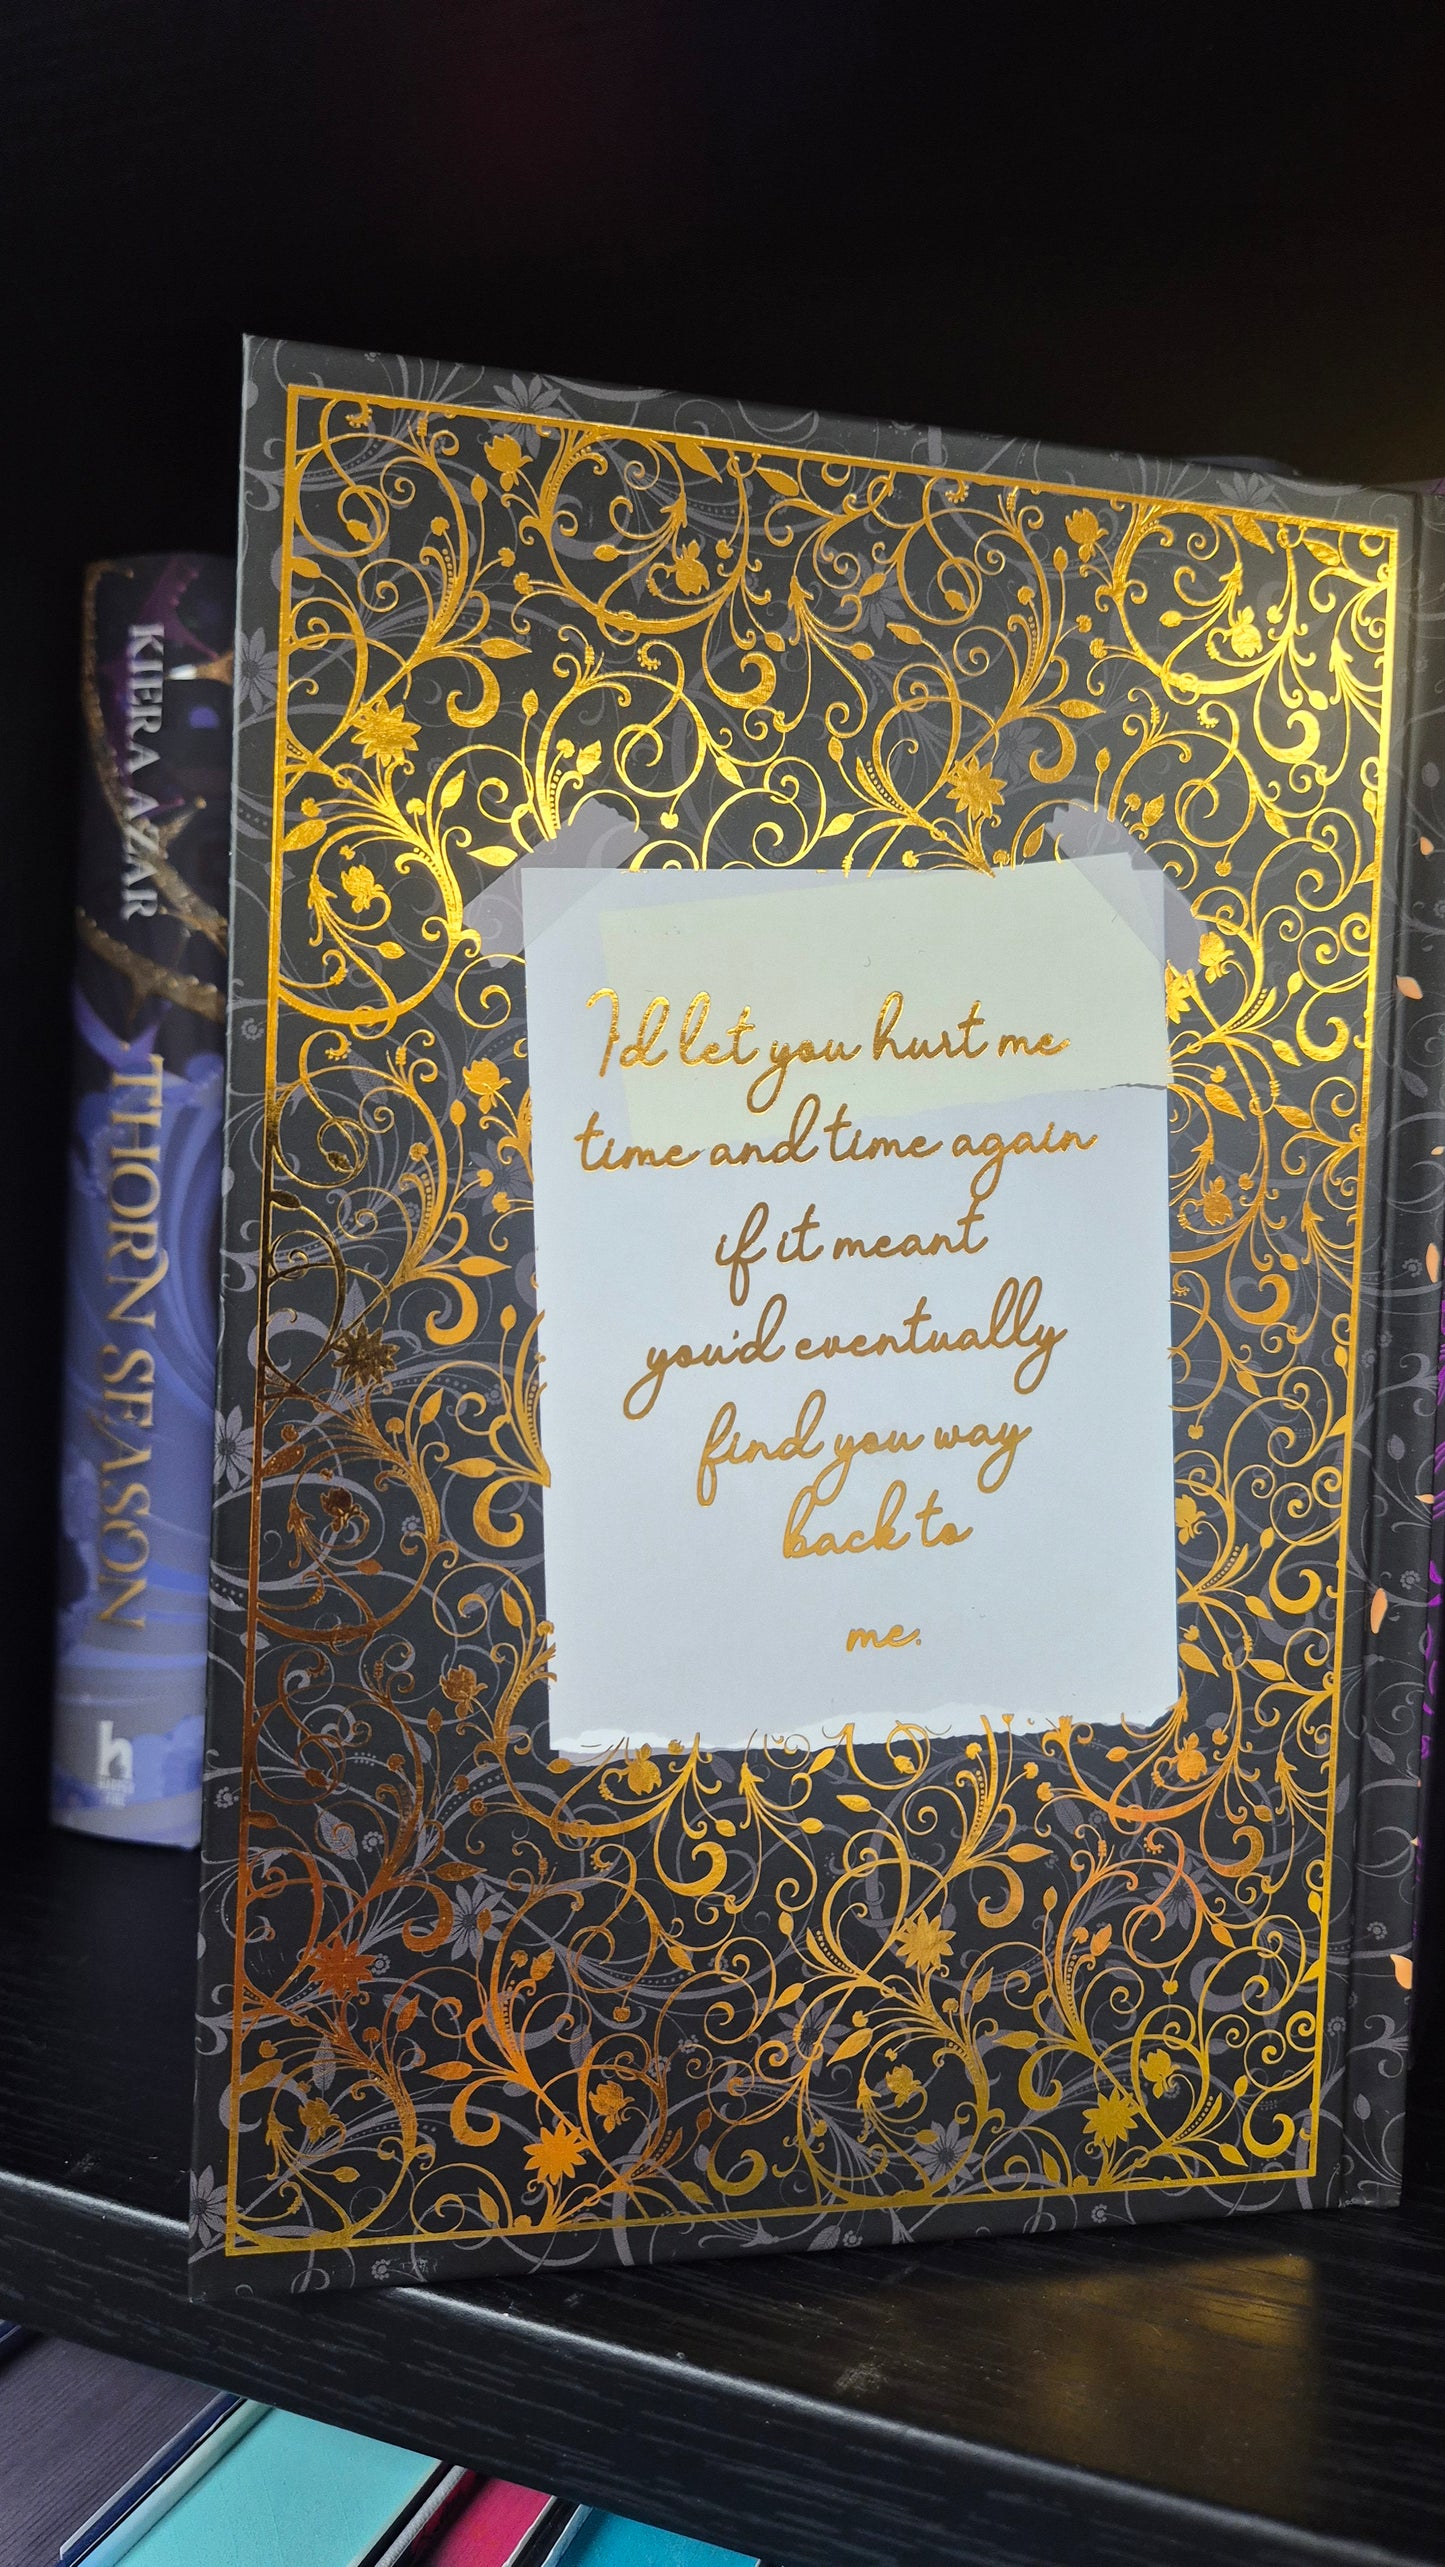 KIERA AZAR
THORN SEASON
h
I'd let you hurt me
time and time again
if it meant
you'd eventually
find you way
back to
me.